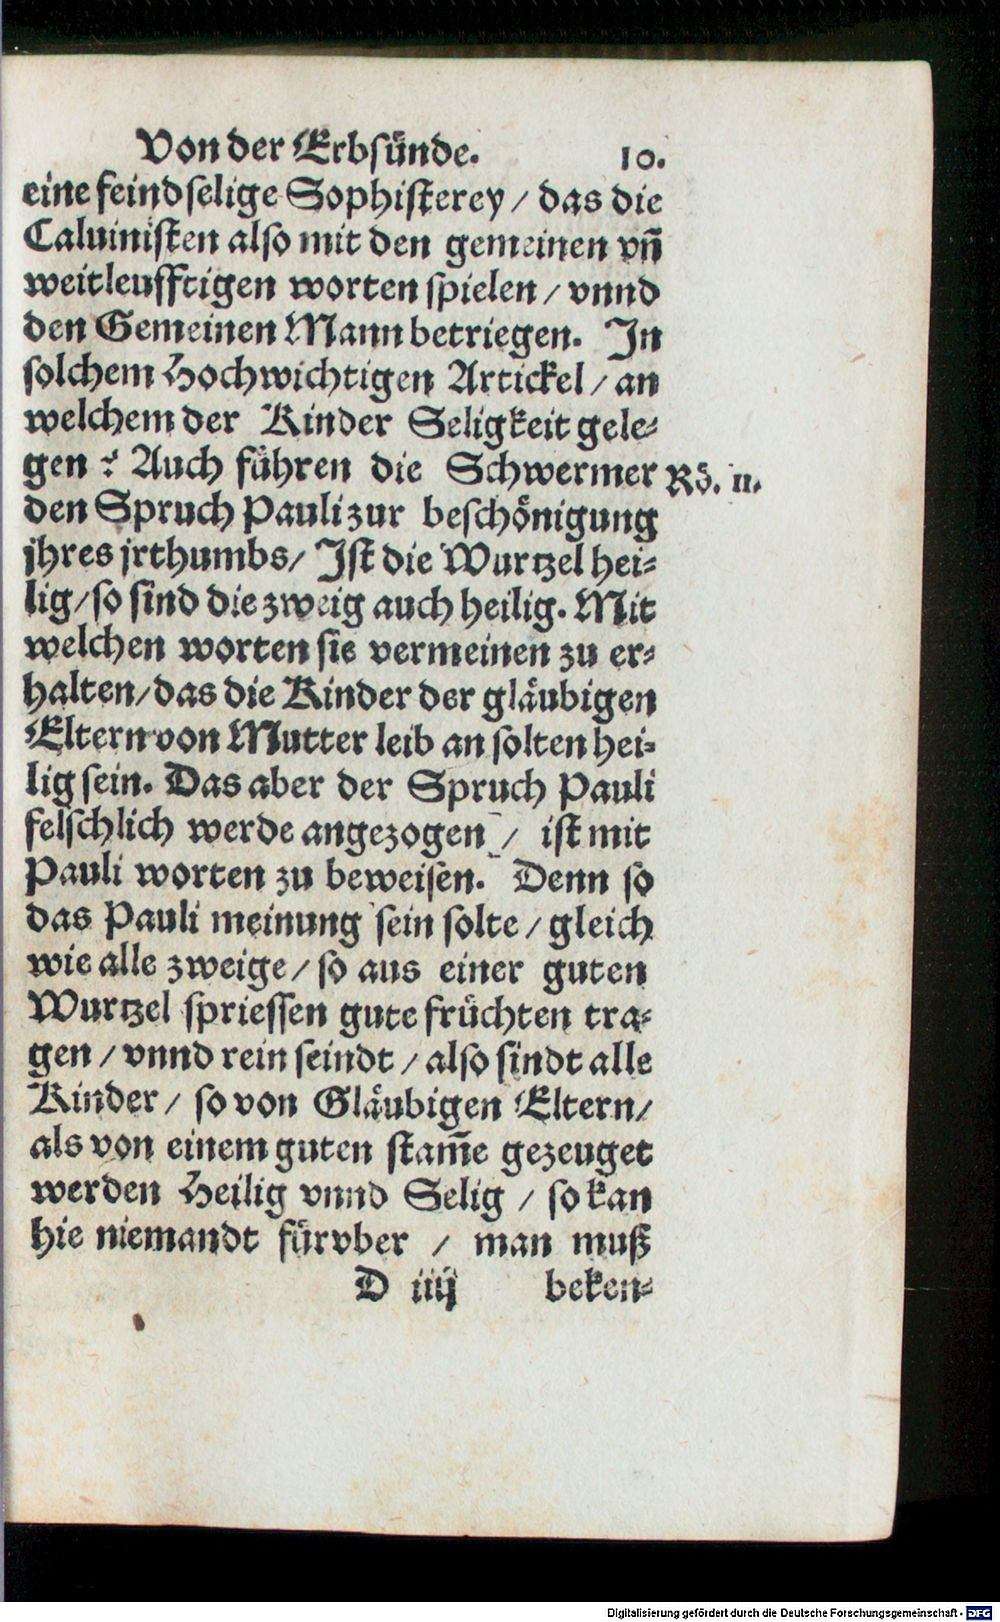 Von der Erbsünde. 10.
eine feindselige Sophisterey / das die
Caluinisten also mit den gemeinen vñ
weitleufftigen worten spielen / vnnd
den Gemeinen Mann betriegen. In
solchem Hochwichtigen Artickel / an
welchem der Kinder Seligkeit gele-
gen ? Auch führen die Schwermer
Rö. 11.
den Spruch Pauli zur beschönigung
jhres jrthumbs / Ist die Wurtzel hei-
lig / so sind die zweig auch heilig. Mit
welchen worten sie vermeinen zu er-
halten / das die Kinder der gläubigen
Eltern von Mutter leib an solten hei-
lig sein. Das aber der Spruch Pauli
felschlich werde angezogen / ist mit
Pauli worten zu beweisen. Denn so
das Pauli meinung sein solte / gleich
wie alle zweige / so aus einer guten
Wurtzel spriessen gute früchten tra-
gen / vnnd rein seindt / also sindt alle
Kinder / so von Gläubigen Eltern /
als von einem guten stam̃e gezeuget
werden Heilig vnnd Selig / so kan
hie niemandt fürvber / man muß
D iiij beken-
Digitalisierung gefördert durch die Deutsche Forschungsgemeinschaft - DFG